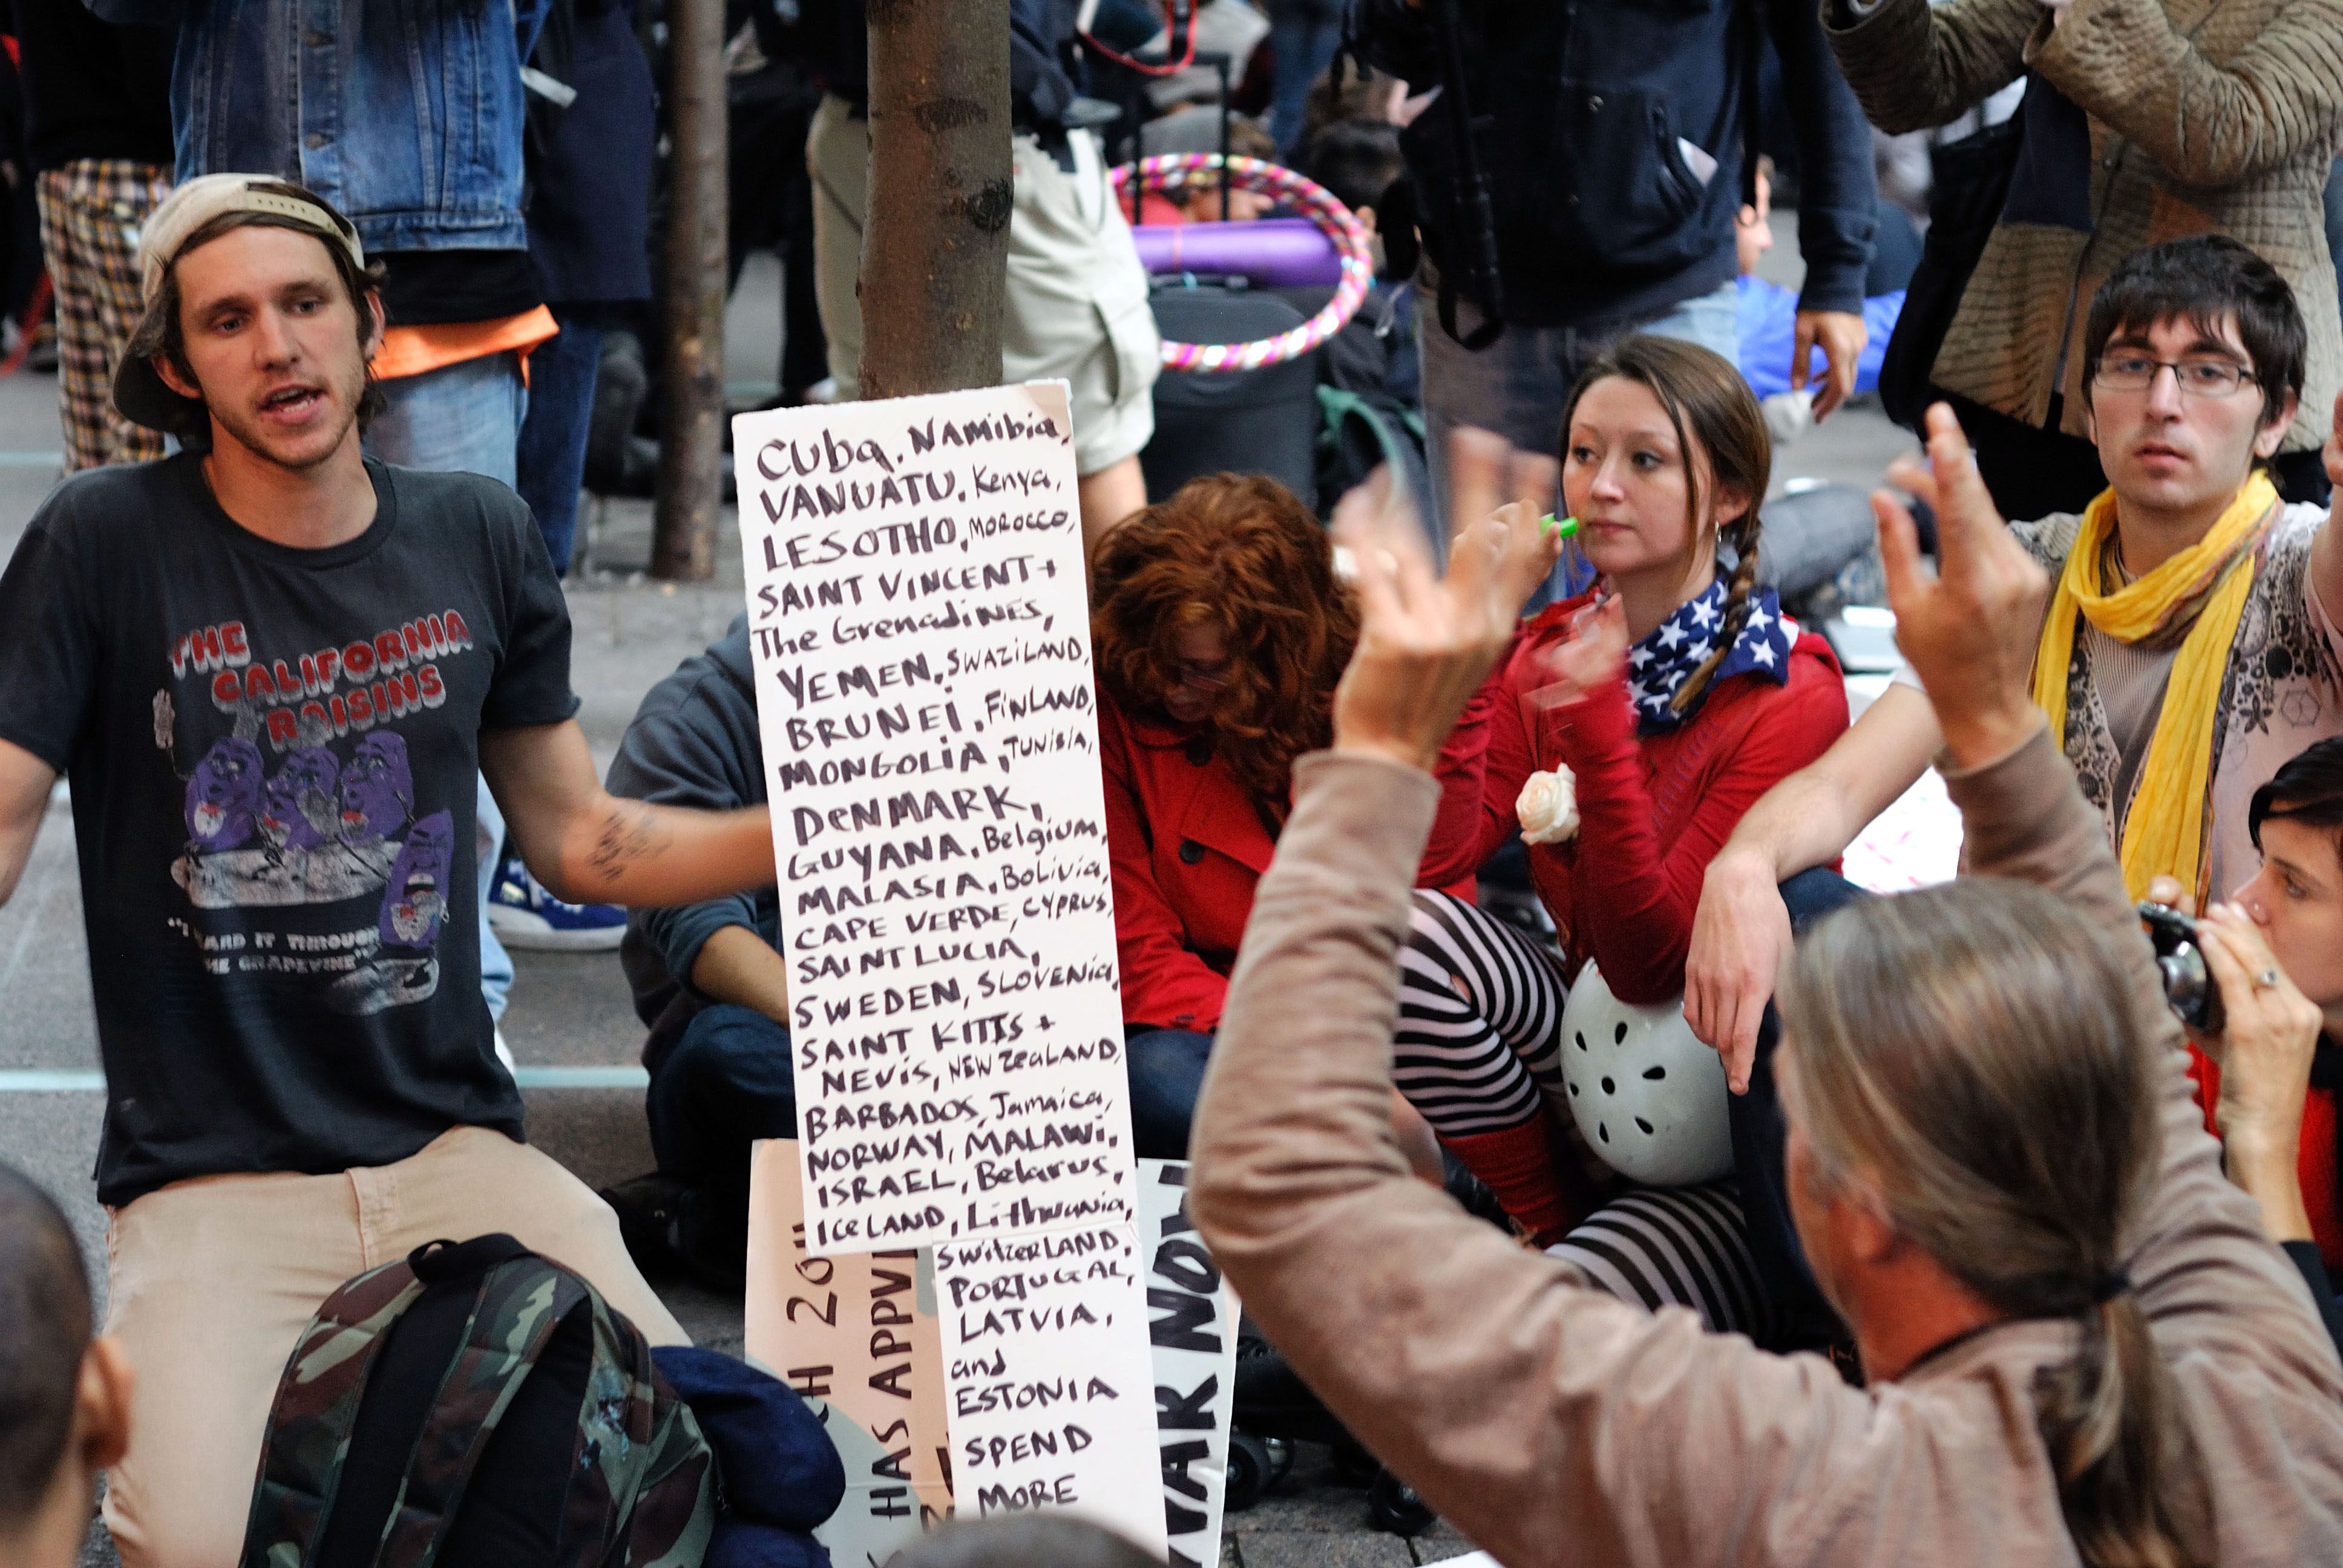 THE
CALIFORNIA
RAISINS
IT THROUGH
GRAPEVINE"
Cuba, NAMibia,
VANUATU, Kenya,
LESOTHO, MOROCCO,
SAINT VINCENT +
The Grenadines,
YEMEN, SWAZILAND,
BRUNEi, FiNLAND,
MONGOLiA, TUNiSiA,
DeNMARK,
GUYANA, Belgium,
MALASIA, Bolivia,
CAPE VERDE, CYPRUS,
SAINT LUCIA,
SWEDEN, SLOVENia,
SAINT KITTS +
NEViS, NEW ZeaLAND,
BARBADOS, Jamaica,
NORWAY, MALAWi,
ISRAEL, Belarus,
IceLAND, Lithuania,
SwitzerLAND,
PORTUGAL,
LATVIA,
and
ESTONIA
SPEND
MORE
HAS APPVL
WAR NOW